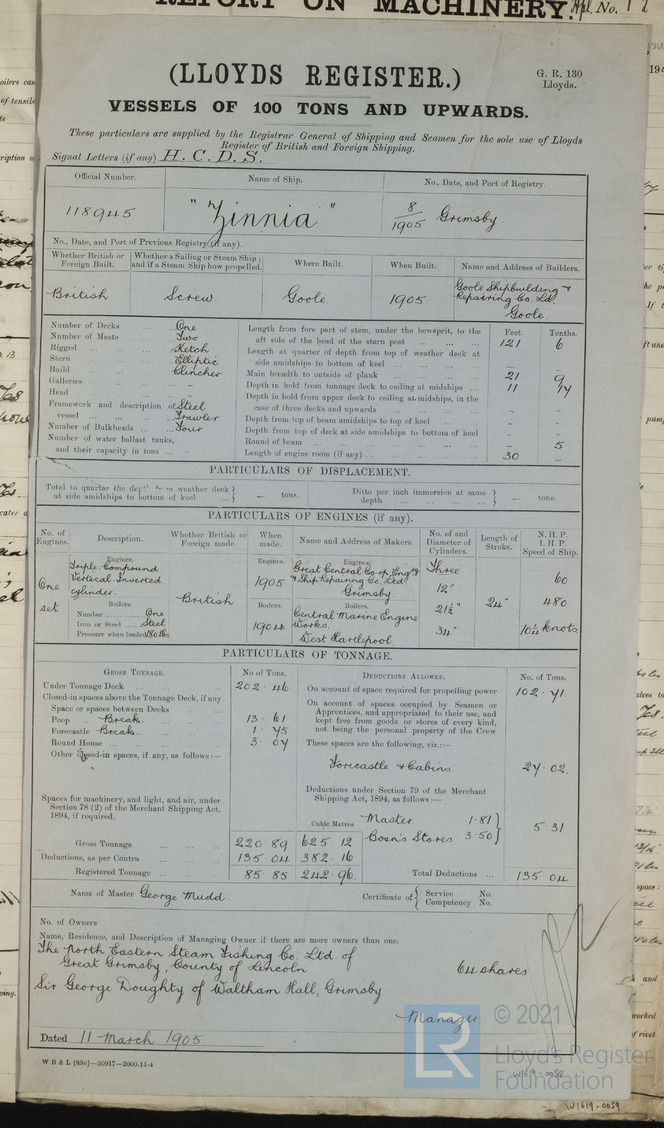 REPORT ON MACHINERY.
(LLOYDS REGISTER.)
G. R. 130
Lloyds.
VESSELS OF 100 TONS AND UPWARDS.
These particulars are supplied by the Registrar General of Shipping and Seamen for the sole use of Lloyds
Register of British and Foreign Shipping.
Signal Letters (if any) H. C. D. S.
Official Number. Name of Ship. No., Date, and Port of Registry.
118945 "Zinnia" 8/1905 Grimsby
No., Date, and Port of Previous Registry (if any).
Whether British or Foreign Built. Whether a Sailing or Steam Ship; and if a Steam Ship how propelled. Where Built. When Built. Name and Address of Builders.
British Screw Goole 1905 Goole Shipbuilding & Repairing Co. Ld. Goole.
Number of Decks ... ... One
Number of Masts ... Two
Rigged ... ... Ketch
Stern ... ... Elliptic
Build ... ... Clincher
Galleries ... ... –
Head ... ... –
Framework and description of vessel ... ... Steel Trawler
Number of Bulkheads ... ... Four
Number of water ballast tanks,
and their capacity in tons ... –
Feet. Tenths.
Length from fore part of stem, under the bowsprit, to the
aft side of the head of the stern post ... ... ... 121 6
Length at quarter of depth from top of weather deck at
side amidships to bottom of keel ... ... ... – –
Main breadth to outside of plank ... ... ... 21 9
Depth in hold from tonnage deck to ceiling at midships ... 11 /74
Depth in hold from upper deck to ceiling at midships, in the
case of three decks and upwards ... ... ... – –
Depth from top of beam amidships to top of keel ... – –
Depth from top of deck at side amidships to bottom of keel – –
Round of beam ... ... ... – 5
Length of engine room (if any) ... ... ... 30 –
PARTICULARS OF DISPLACEMENT.
Total to quarter the depth from weather deck at side amidships to bottom of keel ... – tons. Ditto per inch immersion at same depth ... ... – tons.
PARTICULARS OF ENGINES (if any).
No. of Engines. Description. Whether British or Foreign made. When made. Name and Address of Makers. No. of and Diameter of Cylinders. Length of Stroke. N. H. P. I. H. P. Speed of Ship.
One set
Engines.
Triple Compound
Vertical Inverted
cylinder.
Boilers.
Number ... One
Iron or Steel ... Steel
Pressure when loaded 180 lbs
British
Engines.
1905
Boilers.
1904
Engines.
Great Central Co op. Engg
& Ship Repairing Co. Ltd
Grimsby
Boilers.
Central Marine Engine
Works.
West Hartlepool
Three
12"
21½"
34"
24"
60
480
10¼ knots
PARTICULARS OF TONNAGE.
GROSS TONNAGE. No of Tons.
Under Tonnage Deck ... ... ... 202.46
Closed-in spaces above the Tonnage Deck, if any
Space or spaces between Decks ...
Poop Break. ... ... 13.61
Forecastle Break. ... ... 1.75
Round House ... ... ... 3.07
Other closed-in spaces, if any, as follows:—
Spaces for machinery, and light, and air, under
Section 78 (2) of the Merchant Shipping Act,
1894, if required.
Cubic Metres
Gross Tonnage ... ... 220 89 625 12
Deductions, as per Contra ... ... 135.04 382.16
Registered Tonnage ... ... 85.85 242.96.
DEDUCTIONS ALLOWED. No. of Tons.
On account of space required for propelling power 102.71
On account of spaces occupied by Seamen or
Apprentices, and appropriated to their use, and
kept free from goods or stores of every kind,
not being the personal property of the Crew
These spaces are the following, viz.:—
Forecastle & Cabins. 27.02.
Deductions under Section 79 of the Merchant
Shipping Act, 1894, as follows:—
Master 1.81
Bosn's Stores 3.50
5.31
Total Deductions ... 135 04
Name of Master George Mudd. Certificate of Service No. Competency No.
No. of Owners
Name, Residence, and Description of Managing Owner if there are more owners than one.
The North Eastern Steam Fishing Co. Ltd of
Great Grimsby, County of Lincoln 64 shares
Sir George Doughty of Waltham Hall, Grimsby
Manager
Dated 11 March 1905
W B & L (83o)—20917—2000-11-4
© 2021
LR
Lloyd's Register
Foundation
W1619-0059
W1619-0059